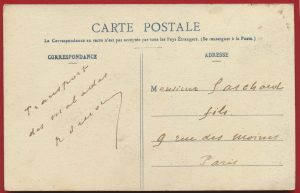 CARTE POSTALE
La Correspondance au recto n'est pas acceptée par tous les Pays Étrangers. (Se renseigner à la Poste)
CORRESPONDANCE
ADRESSE
Transport
des malades
Monsieur
fils
9 rue des moines
Paris